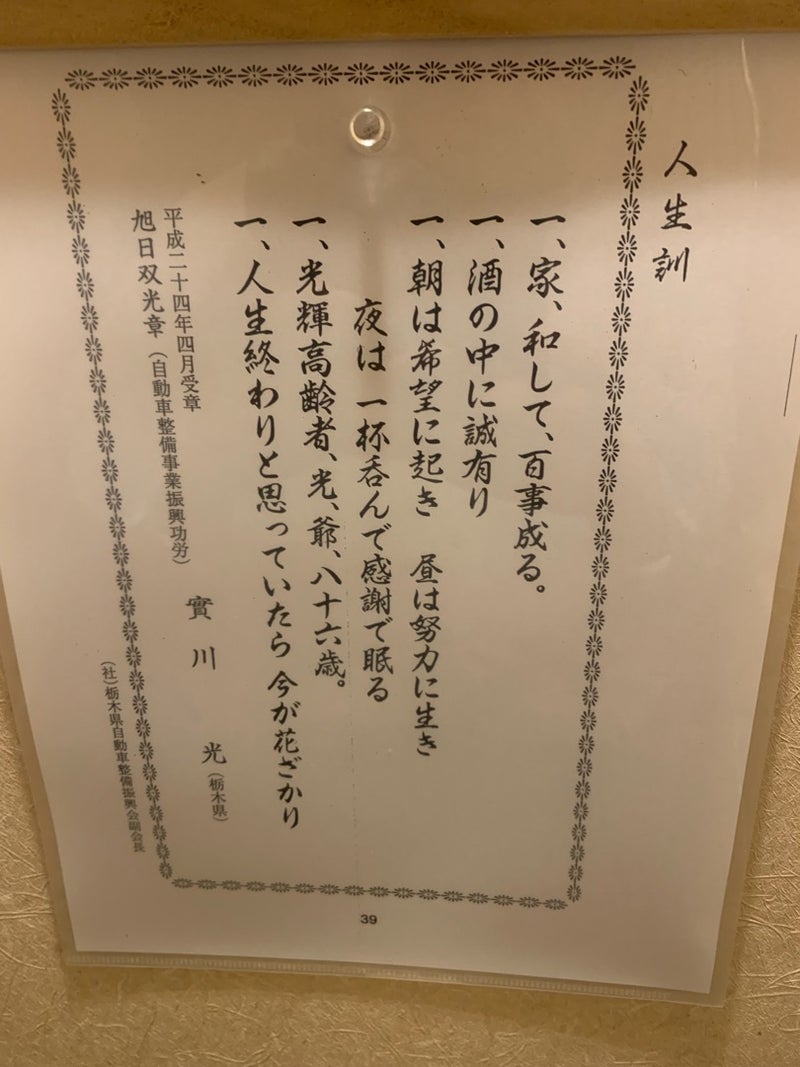 人生訓
一、家、和して、百事成る。
一、酒の中に誠有り
一、朝は希望に起き　昼は努力に生き
夜は一杯呑んで感謝で眠る
一、光輝高齢者、光、爺、八十六歳。
一、人生終わりと思っていたら 今が花ざかり
平成二十四年四月受章
旭日双光章（自動車整備事業振興功労）
實川　光（栃木県）
（社）栃木県自動車整備振興会副会長
39